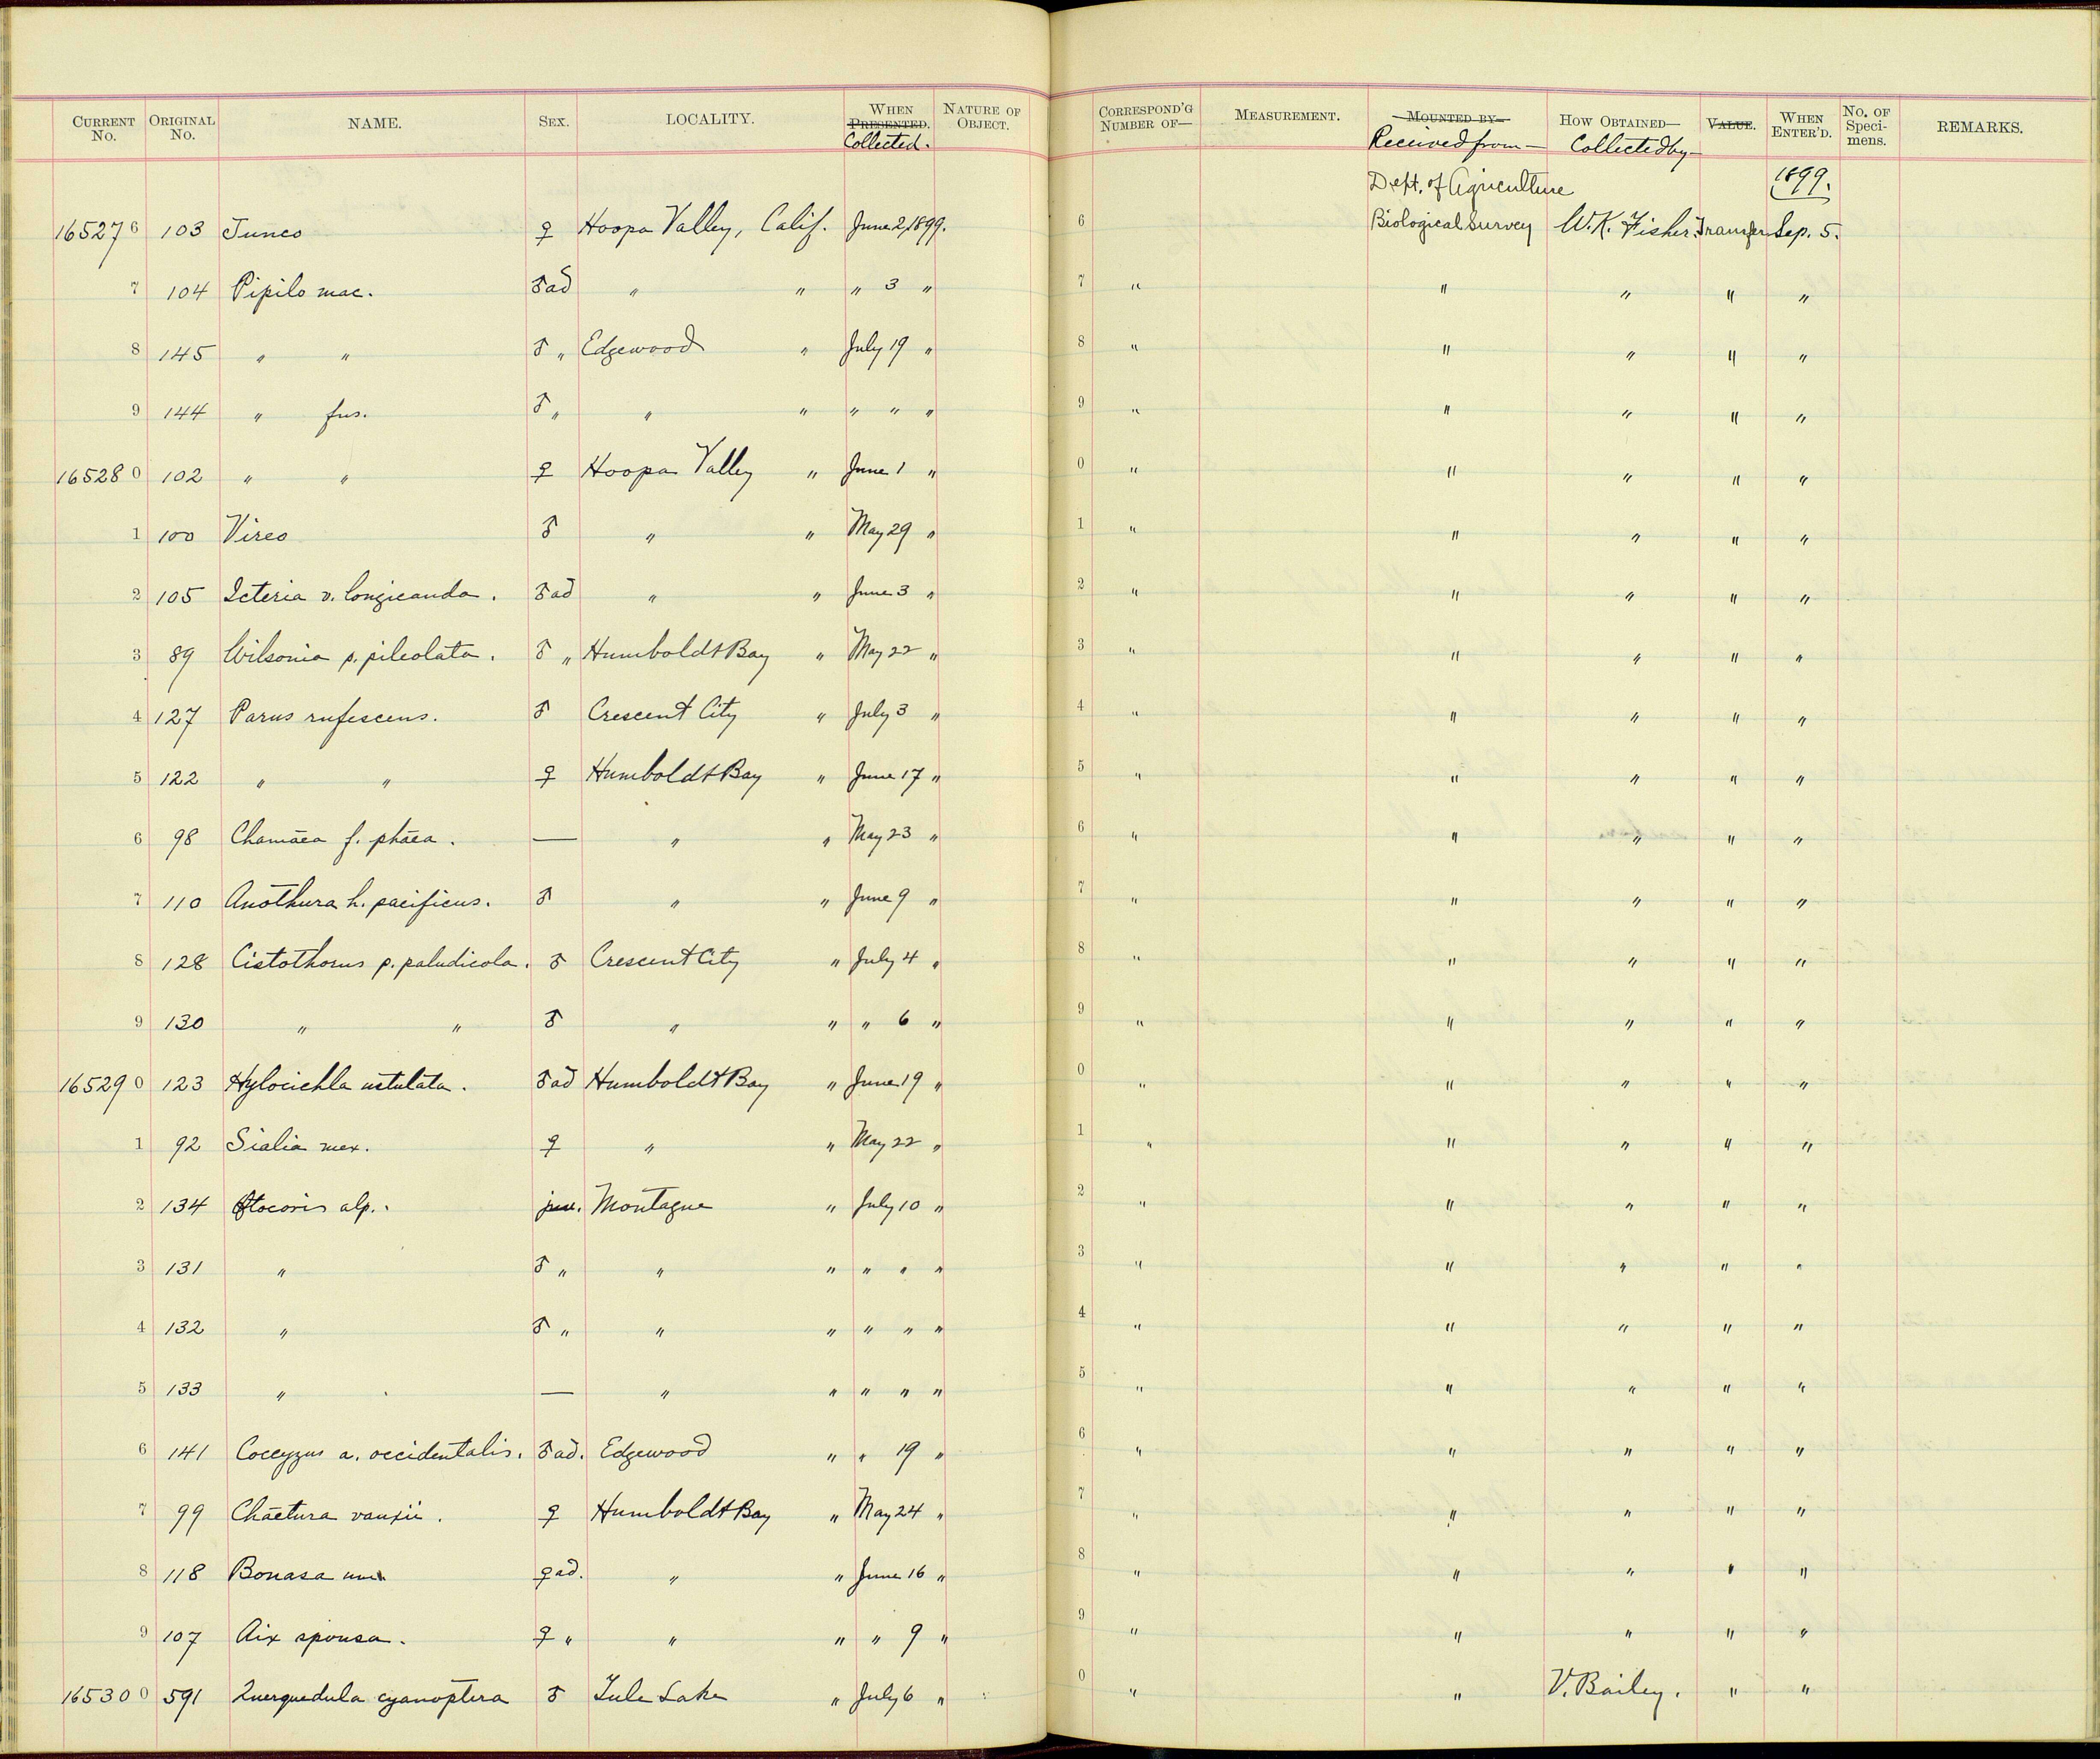 CURRENT No. ORIGINAL No. NAME. SEX. LOCALITY. WHEN PRESENTED. Collected. NATURE OF OBJECT. CORRESPOND'G NUMBER OF— MEASUREMENT. MOUNTED BY— Received from— HOW OBTAINED— Collected by— VALUE. WHEN ENTER'D. No. OF Speci-mens. REMARKS.
Dept. of Agriculture 1899.
165276 103 Junco ♀ Hoopa Valley, Calif. June 2, 1899. 6 Biological Survey W. K. Fisher. Transfer Sep. 5.
7 104 Pipilo mac. ♂ ad " " " 3 " 7 " " " " "
8 145 " " ♂ " Edgewood " July 19 " 8 " " " " "
9 144 " fus. ♂ " " " " " " 9 " " " " "
165280 102 " " ♀ Hoopa Valley " June 1 " 0 " " " " "
1 100 Vireo ♂ " " May 29 " 1 " " " " "
2 105 Icteria v. longicauda. ♂ ad " " June 3 " 2 " " " " "
3 89 Wilsonia p. pileolata. ♂ " Humboldt Bay " May 22 " 3 " " " " "
4 127 Parus rufescens. ♂ Crescent City " July 3 " 4 " " " " "
5 122 " " ♀ Humboldt Bay " June 17 " 5 " " " " "
6 98 Chamaea f. phaea. — " " May 23 " 6 " " " " "
7 110 Anothura h. pacificus. ♂ " " June 9 " 7 " " " " "
8 128 Cistothorus p. paludicola. ♂ Crescent City " July 4 " 8 " " " " "
9 130 " " ♂ " " " 6 " 9 " " " " "
165290 123 Hylocichla ustulata. ♂ ad Humboldt Bay " June 19 " 0 " " " " "
1 92 Sialia mex. ♀ " " May 22 " 1 " " " " "
2 134 Otocoris alp. juv. Montague " July 10 " 2 " " " " "
3 131 " ♂ " " " " " " 3 " " " " "
4 132 " ♂ " " " " " " 4 " " " " "
5 133 " — " " " " " 5 " " " " "
6 141 Coccyzus a. occidentalis. ♂ ad. Edgewood " " 19 " 6 " " " " "
7 99 Chaetura vauxii. ♀ Humboldt Bay " May 24 " 7 " " " " "
8 118 Bonasa um ♀ ad. " " June 16 " 8 " " " " "
9 107 Aix sponsa. ♀ " " " " 9 " 9 " " " " "
165300 591 Querquedula cyanoptera ♂ Tule Lake " July 6 " 0 " " V. Bailey. " "